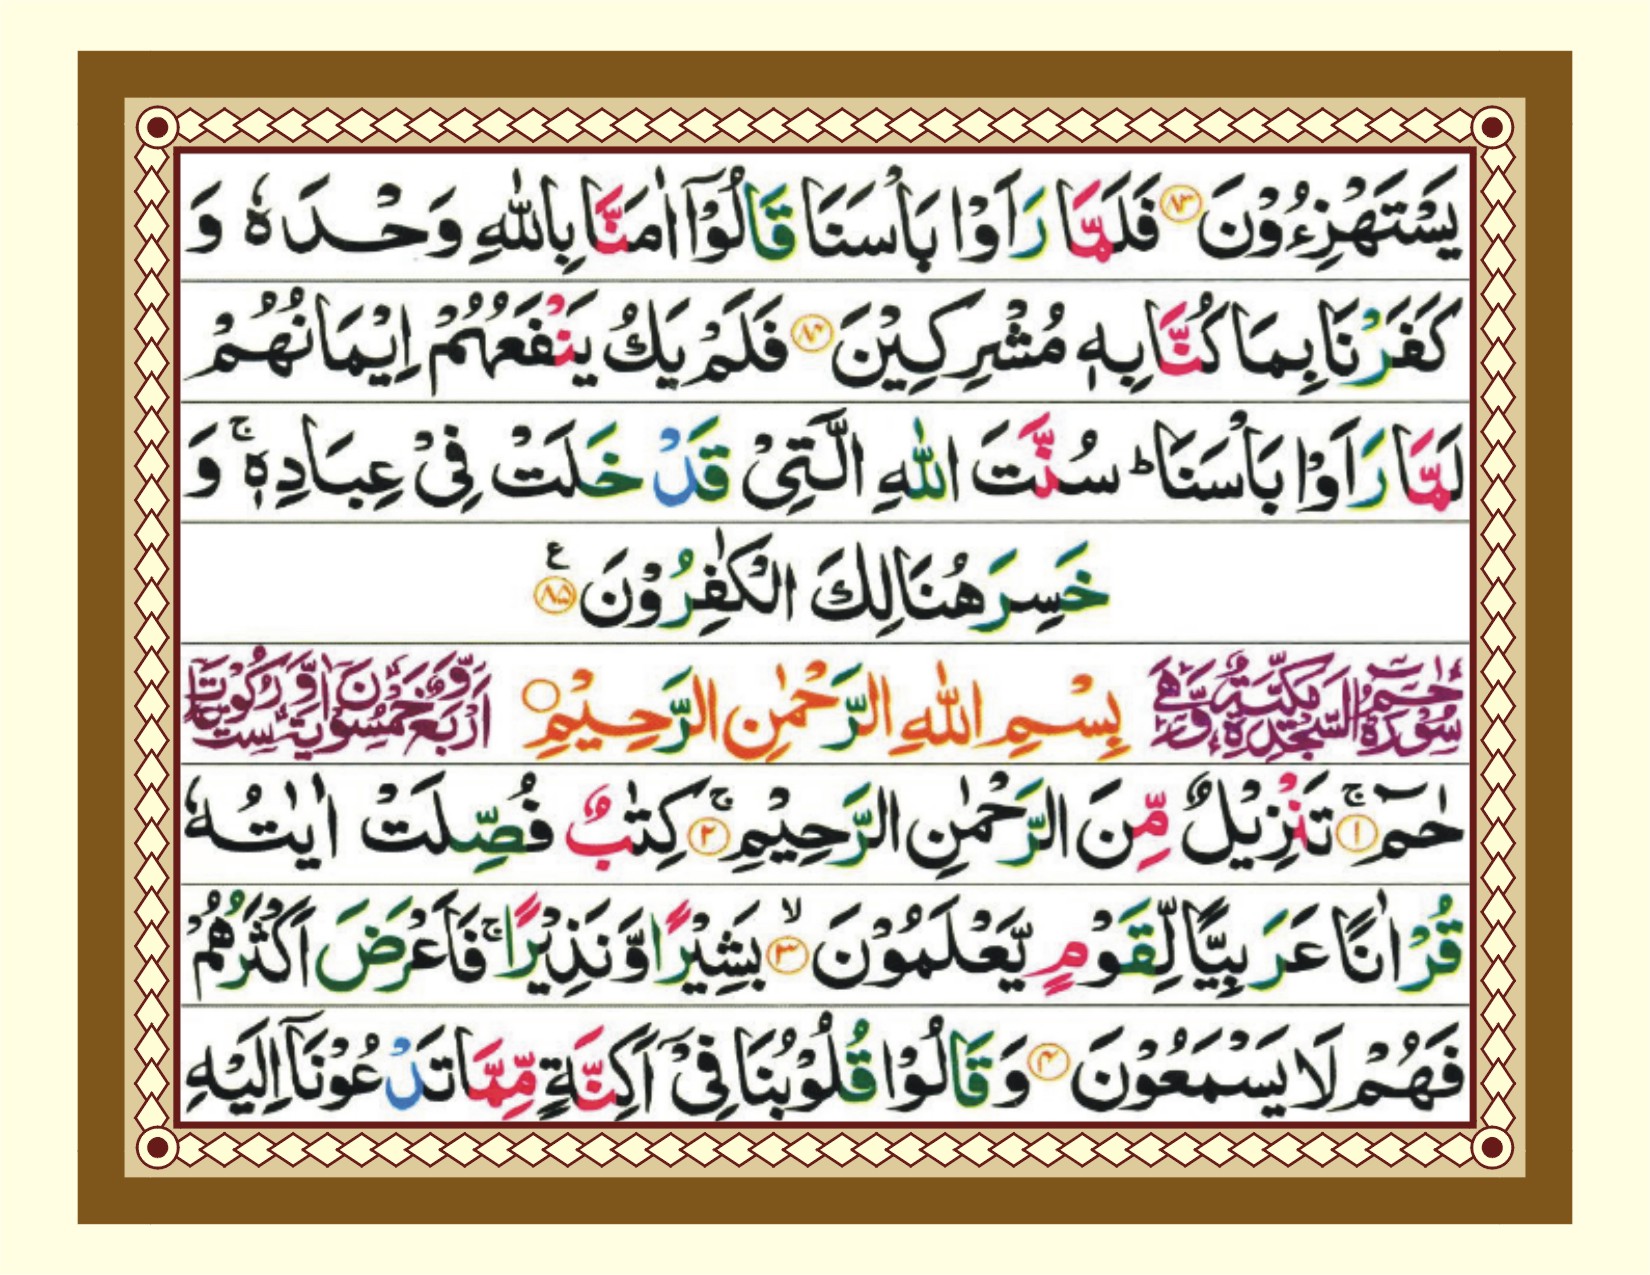 يَسْتَهْزِءُوْنَ ﴿۸۳﴾ فَلَمَّا رَاَوْا بَاْسَنَا قَالُوْۤا اٰمَنَّا بِاللّٰهِ وَحْدَهٗ وَ
كَفَرْنَا بِمَا كُنَّا بِهٖ مُشْرِكِيْنَ ﴿۸۴﴾ فَلَمْ يَكُ يَنْفَعُهُمْ اِيْمَانُهُمْ
لَمَّا رَاَوْا بَاْسَنَا ؕ سُنَّتَ اللّٰهِ الَّتِيْ قَدْ خَلَتْ فِيْ عِبَادِهٖ ۚ وَ
خَسِرَ هُنَالِكَ الْكٰفِرُوْنَ ﴿۸۵﴾ ع
سُوْرَةُ حٰمٓ السَّجْدَةِ مَكِّيَّةٌ وَّهِيَ بِسْمِ اللّٰهِ الرَّحْمٰنِ الرَّحِيْمِ اَرْبَعٌ وَّخَمْسُوْنَ اٰيَةً وَّسِتُّ رُكُوْعَاتٍ
حٰمٓ ۚ ﴿۱﴾ تَنْزِيْلٌ مِّنَ الرَّحْمٰنِ الرَّحِيْمِ ۚ ﴿۲﴾ كِتٰبٌ فُصِّلَتْ اٰيٰتُهٗ
قُرْاٰنًا عَرَبِيًّا لِّقَوْمٍ يَّعْلَمُوْنَ ۙ ﴿۳﴾ بَشِيْرًا وَّنَذِيْرًا ۚ فَاَعْرَضَ اَكْثَرُهُمْ
فَهُمْ لَا يَسْمَعُوْنَ ﴿۴﴾ وَقَالُوْا قُلُوْبُنَا فِيْۤ اَكِنَّةٍ مِّمَّا تَدْعُوْنَاۤ اِلَيْهِ